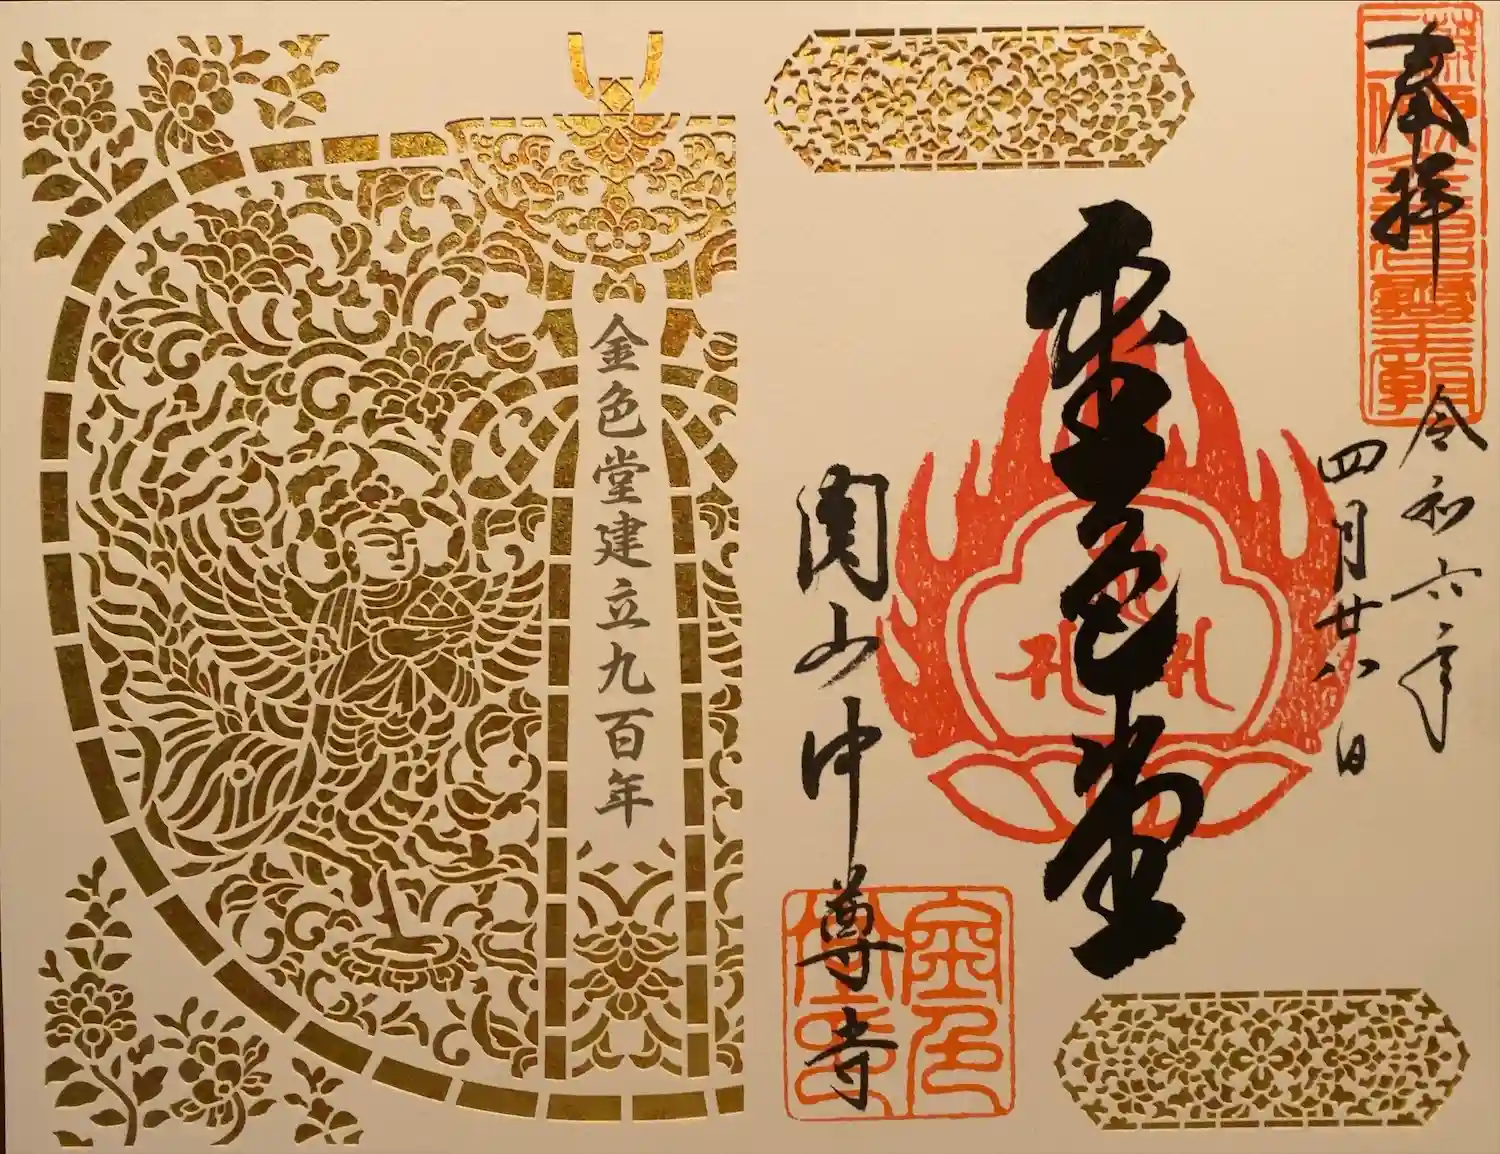 奉拝
令和六年
四月廿八日
金色堂
関山中尊寺
金色堂建立九百年